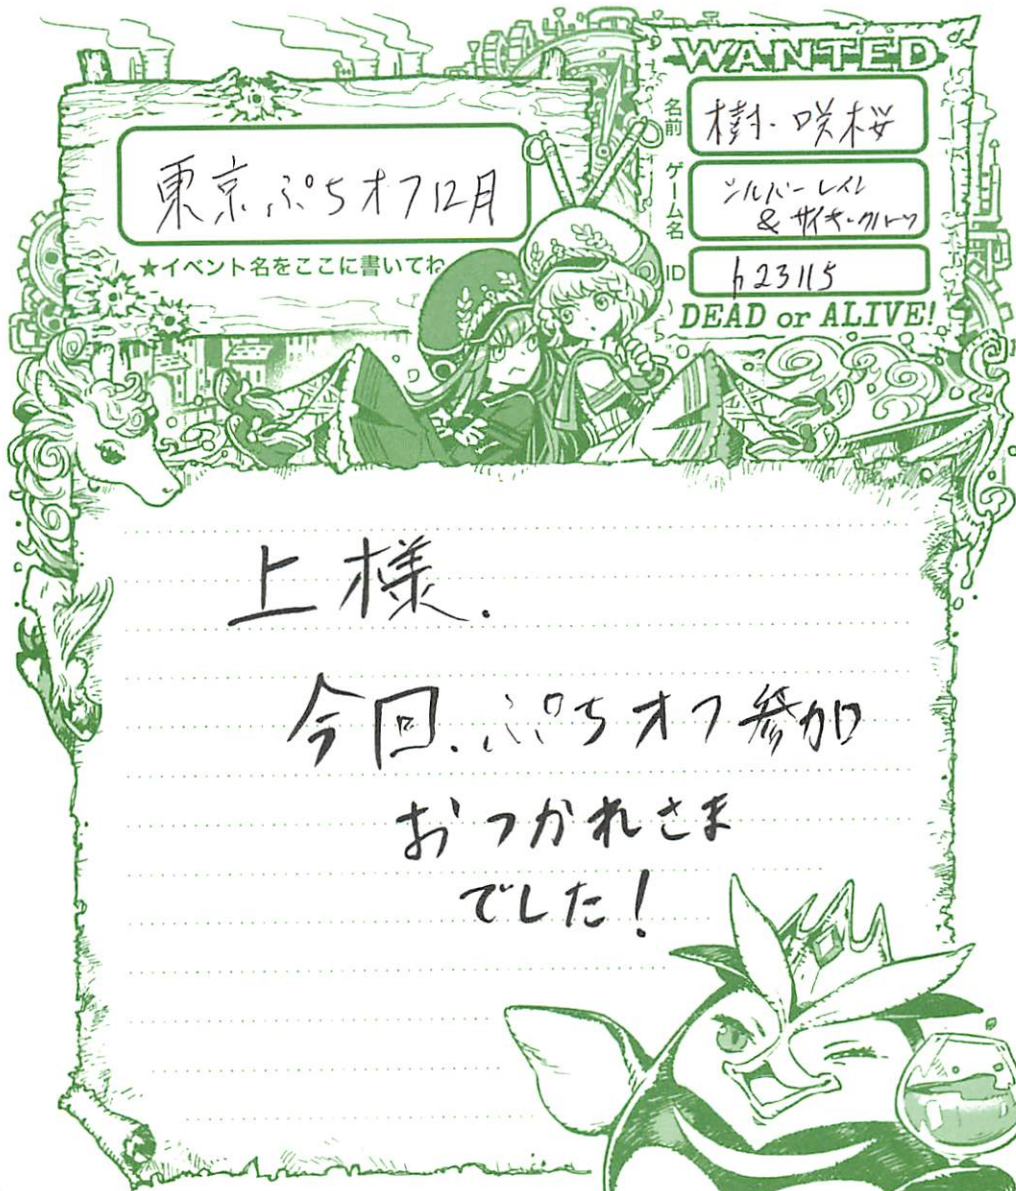 東京ぷちオフ12月
★イベント名をここに書いてね
WANTED
名前
樹・咲桜
ゲーム名
シルバーレイン
& サイキックハーツ
ID
h23115
DEAD or ALIVE!
上様.
今回.ぷちオフ参加
おつかれさま
でした!